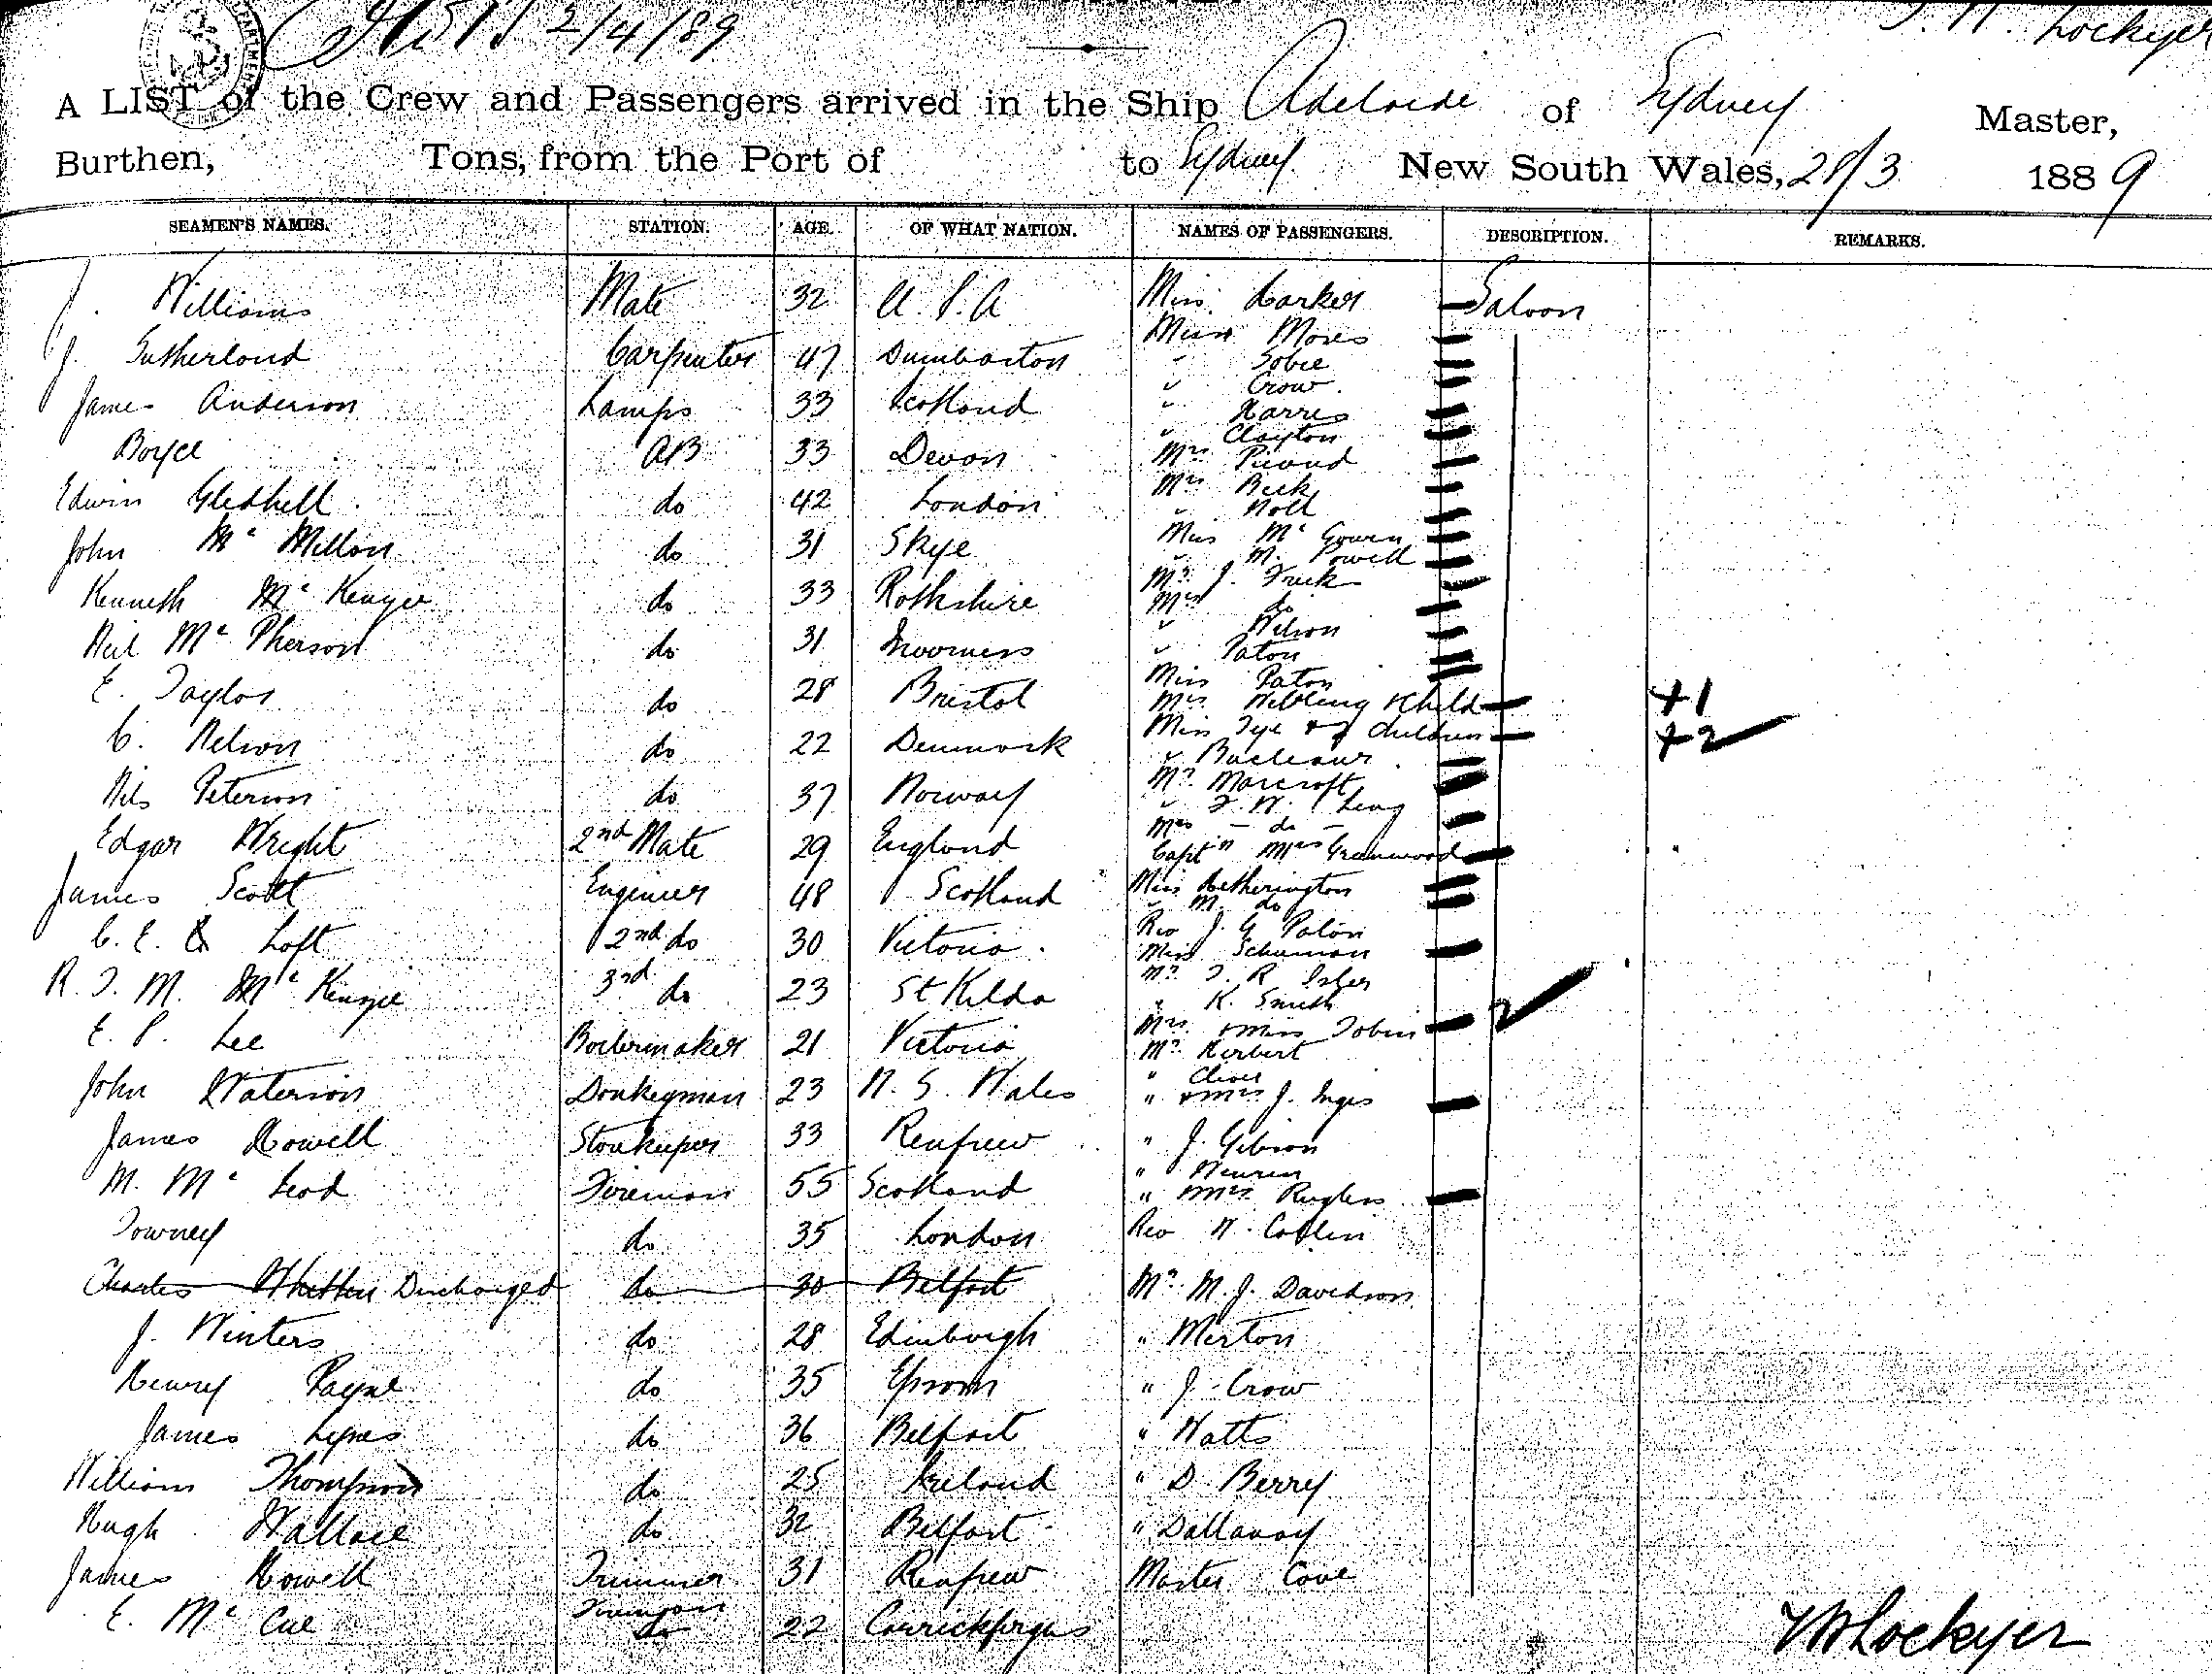 2/4/89
Lockyer
A LIST of the Crew and Passengers arrived in the Ship Adelaide of Sydney Master,
Burthen, Tons, from the Port of to Sydney New South Wales, 28/3 1889
SEAMEN'S NAMES. STATION. AGE. OF WHAT NATION. NAMES OF PASSENGERS. DESCRIPTION. REMARKS.
J. Williams Mate 32 U.S.A Miss Larker Saloon
Miss Moses
J. Sutherland Carpenter 47 Dumbarton " Sobie
" Crow
James Anderson Lamps 33 Scotland " Harris
" Clayton
Boyce AB 33 Devon Mrs Picand
Mrs Beck
Edwin Gledhill do 42 London " Noll
John Mc Millan do 31 Skye Miss Mc Gowen
" M. Powell
Kenneth Mc Kenzie do 33 Rothshire Mr J. Truck
Mrs do
Neil Mc Pherson do 31 Invorness " Wilson
" Paton
E. Taylor do 28 Bristol Miss Paton
Mrs Webling & Child +1
C. Nelson do 22 Denmark Miss Tye & Children +2
" 
Nils Peterson do 37 Norway Mr Marcroft
" F. W. Leng
Edgar Wright 2nd Mate 29 England Mrs - do -
Captn Mrs Greenwood
James Scott Engineer 48 Scotland Miss Hetherington
" M. do
C. E. Loft 2nd do 30 Victoria Rev J. G Paton
Miss Schuman
R. T. M. Mc Kenzie 3rd do 23 St Kilda Mr T. R Isles
" K. Smith
E. P. Lee Boilermaker 21 Victoria Mrs & Miss Tobin
Mr Herbert
John Waterson Donkeyman 23 N. S. Wales " Clives
" & Mrs J. Inges
James Howell Storekeeper 33 Renfrew " J. Gibson
" 
M. Mc Leod Fireman 55 Scotland " & Mrs Rugless
Towney do 35 London Rev W. Coplin
Charles Whetten Discharged do 30 Belfast Mr M. J. Davidson
J. Winters do 28 Edinburgh " Merton
Henry Payne do 35 Epsom " J. Crow
James Lynes do 36 Belfast " Watts
William Thompson do 25 Ireland " D. Berry
Hugh Wallace do 32 Belfast " Dallaway
James Howell Trimmer 31 Renfrew Master Cove
E. Mc Cue Fireman do 22 Carrickfergus
Lockyer